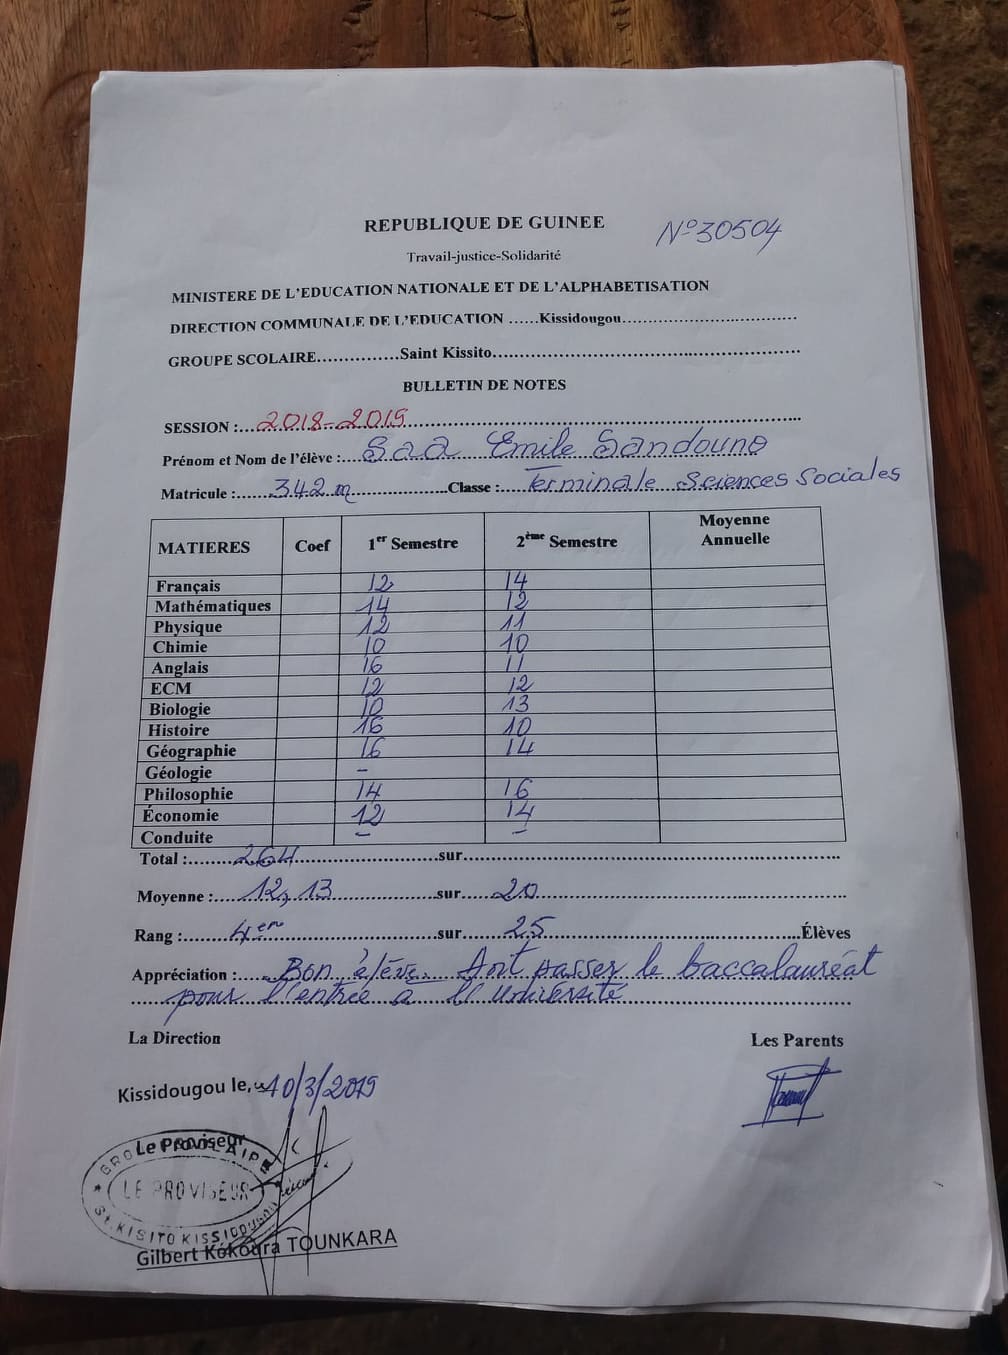 REPUBLIQUE DE GUINEE
N°30504
Travail-justice-Solidarité
MINISTERE DE L'EDUCATION NATIONALE ET DE L'ALPHABETISATION
DIRECTION COMMUNALE DE L'EDUCATION ......Kissidougou..........................................
GROUPE SCOLAIRE..............Saint Kissito..........................................................
BULLETIN DE NOTES
SESSION :....2018-2019..........................................................
Prénom et Nom de l'élève :....Saa Emile Sandouno
Matricule :......342m......................Classe :....Terminale Sciences Sociales
MATIERES Coef 1er Semestre 2ème Semestre Moyenne Annuelle
Français 12 14
Mathématiques 14 12
Physique 12 11
Chimie 10 10
Anglais 16 11
ECM 12 12
Biologie 10 13
Histoire 16 10
Géographie 16 14
Géologie -
Philosophie 14 16
Économie 12 14
Conduite - -
Total :........264............................sur..........................................................
Moyenne :.....12,13......................sur.......20..................................................
Rang :........4ere............................sur.........25..........................................Élèves
Appréciation :.....Bon élève. Doit passer le baccalauréat
pour l'entrée à l'Université
La Direction
Les Parents
Kissidougou le, 10/3/2019
Le Proviseur
LE PROVISEUR
ST. KISITO KISSIDOUGOU
Gilbert Kokoura TOUNKARA